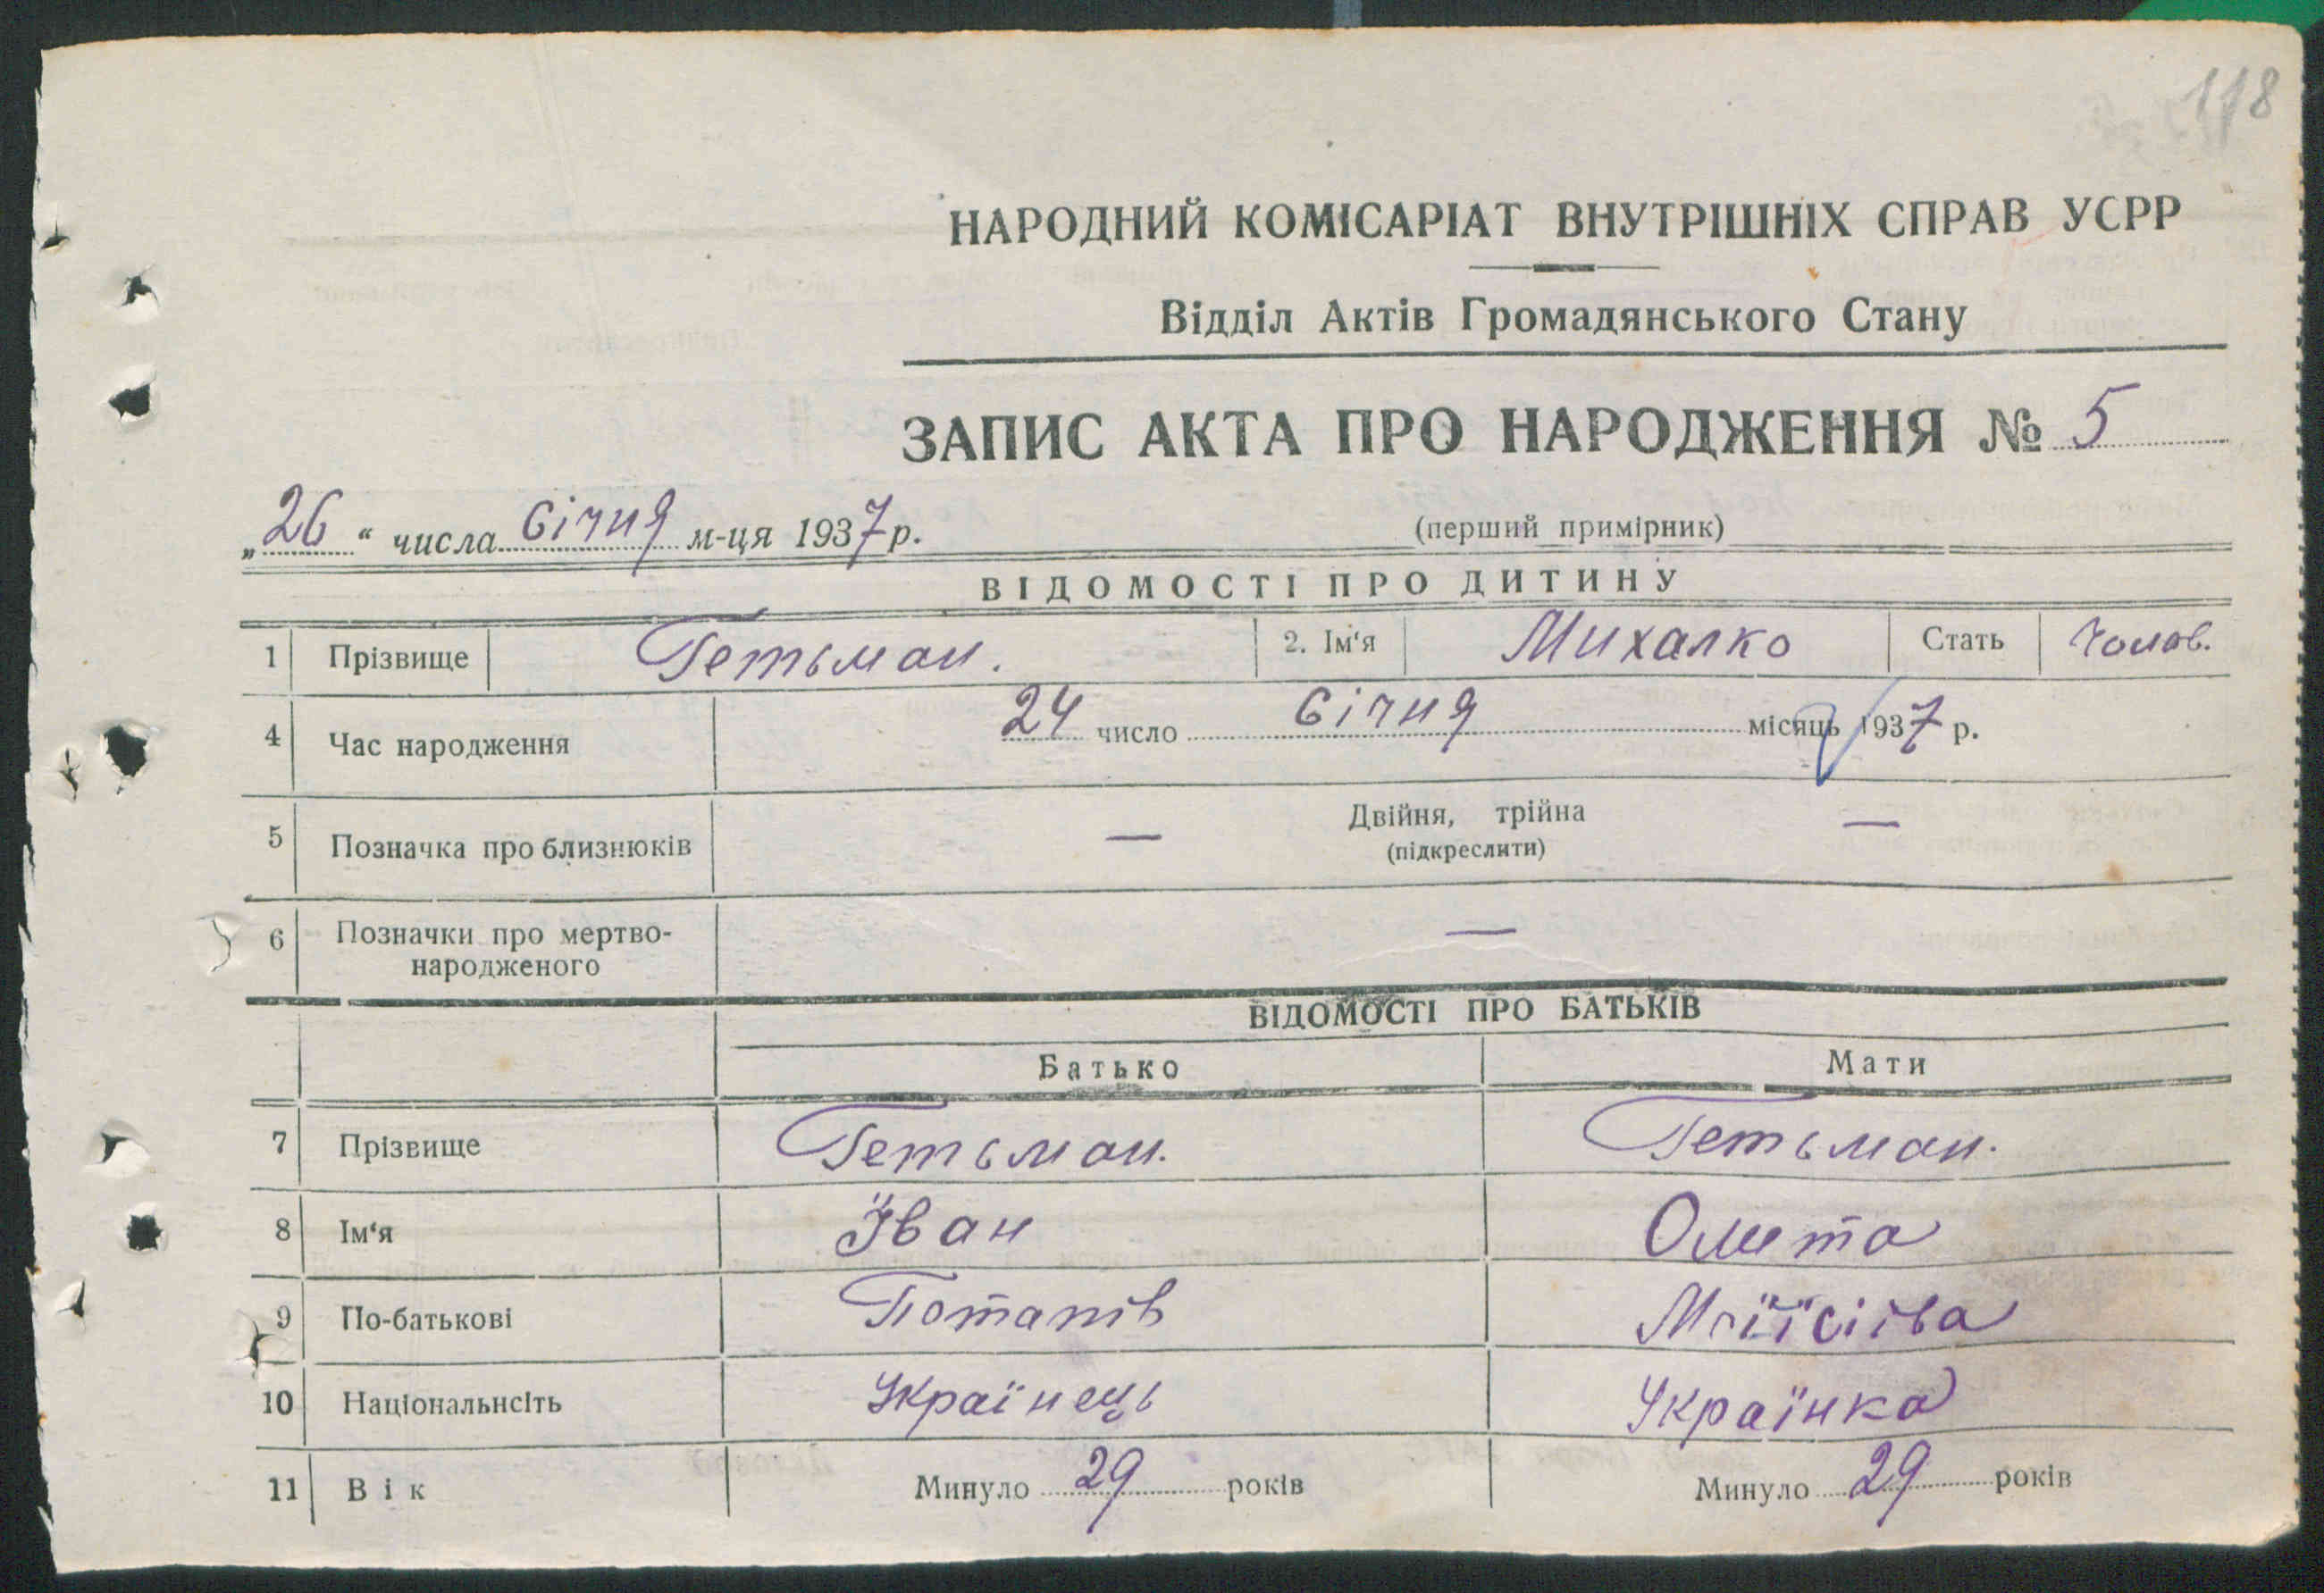 118
НАРОДНИЙ КОМІСАРІАТ ВНУТРІШНІХ СПРАВ УСРР
Відділ Актів Громадянського Стану
ЗАПИС АКТА ПРО НАРОДЖЕННЯ № 5
„26“ числа Січня м-ця 1937 р. (перший примірник)
ВІДОМОСТІ ПРО ДИТИНУ
1 Прізвище Гетьман. 2. Ім'я Михалко Стать Чолов.
4 Час народження 24 число Січня місяць 1937 р.
5 Позначка про близнюків — Двійня, трійна —
(підкреслити)
6 Позначки про мертво-
народженого —
ВІДОМОСТІ ПРО БАТЬКІВ
Батько Мати
7 Прізвище Гетьман. Гетьман.
8 Ім'я Іван
9 По-батькові Потапів
10 Національнсіть Українець Українка
11 Вік Минуло 29 років Минуло 29 років